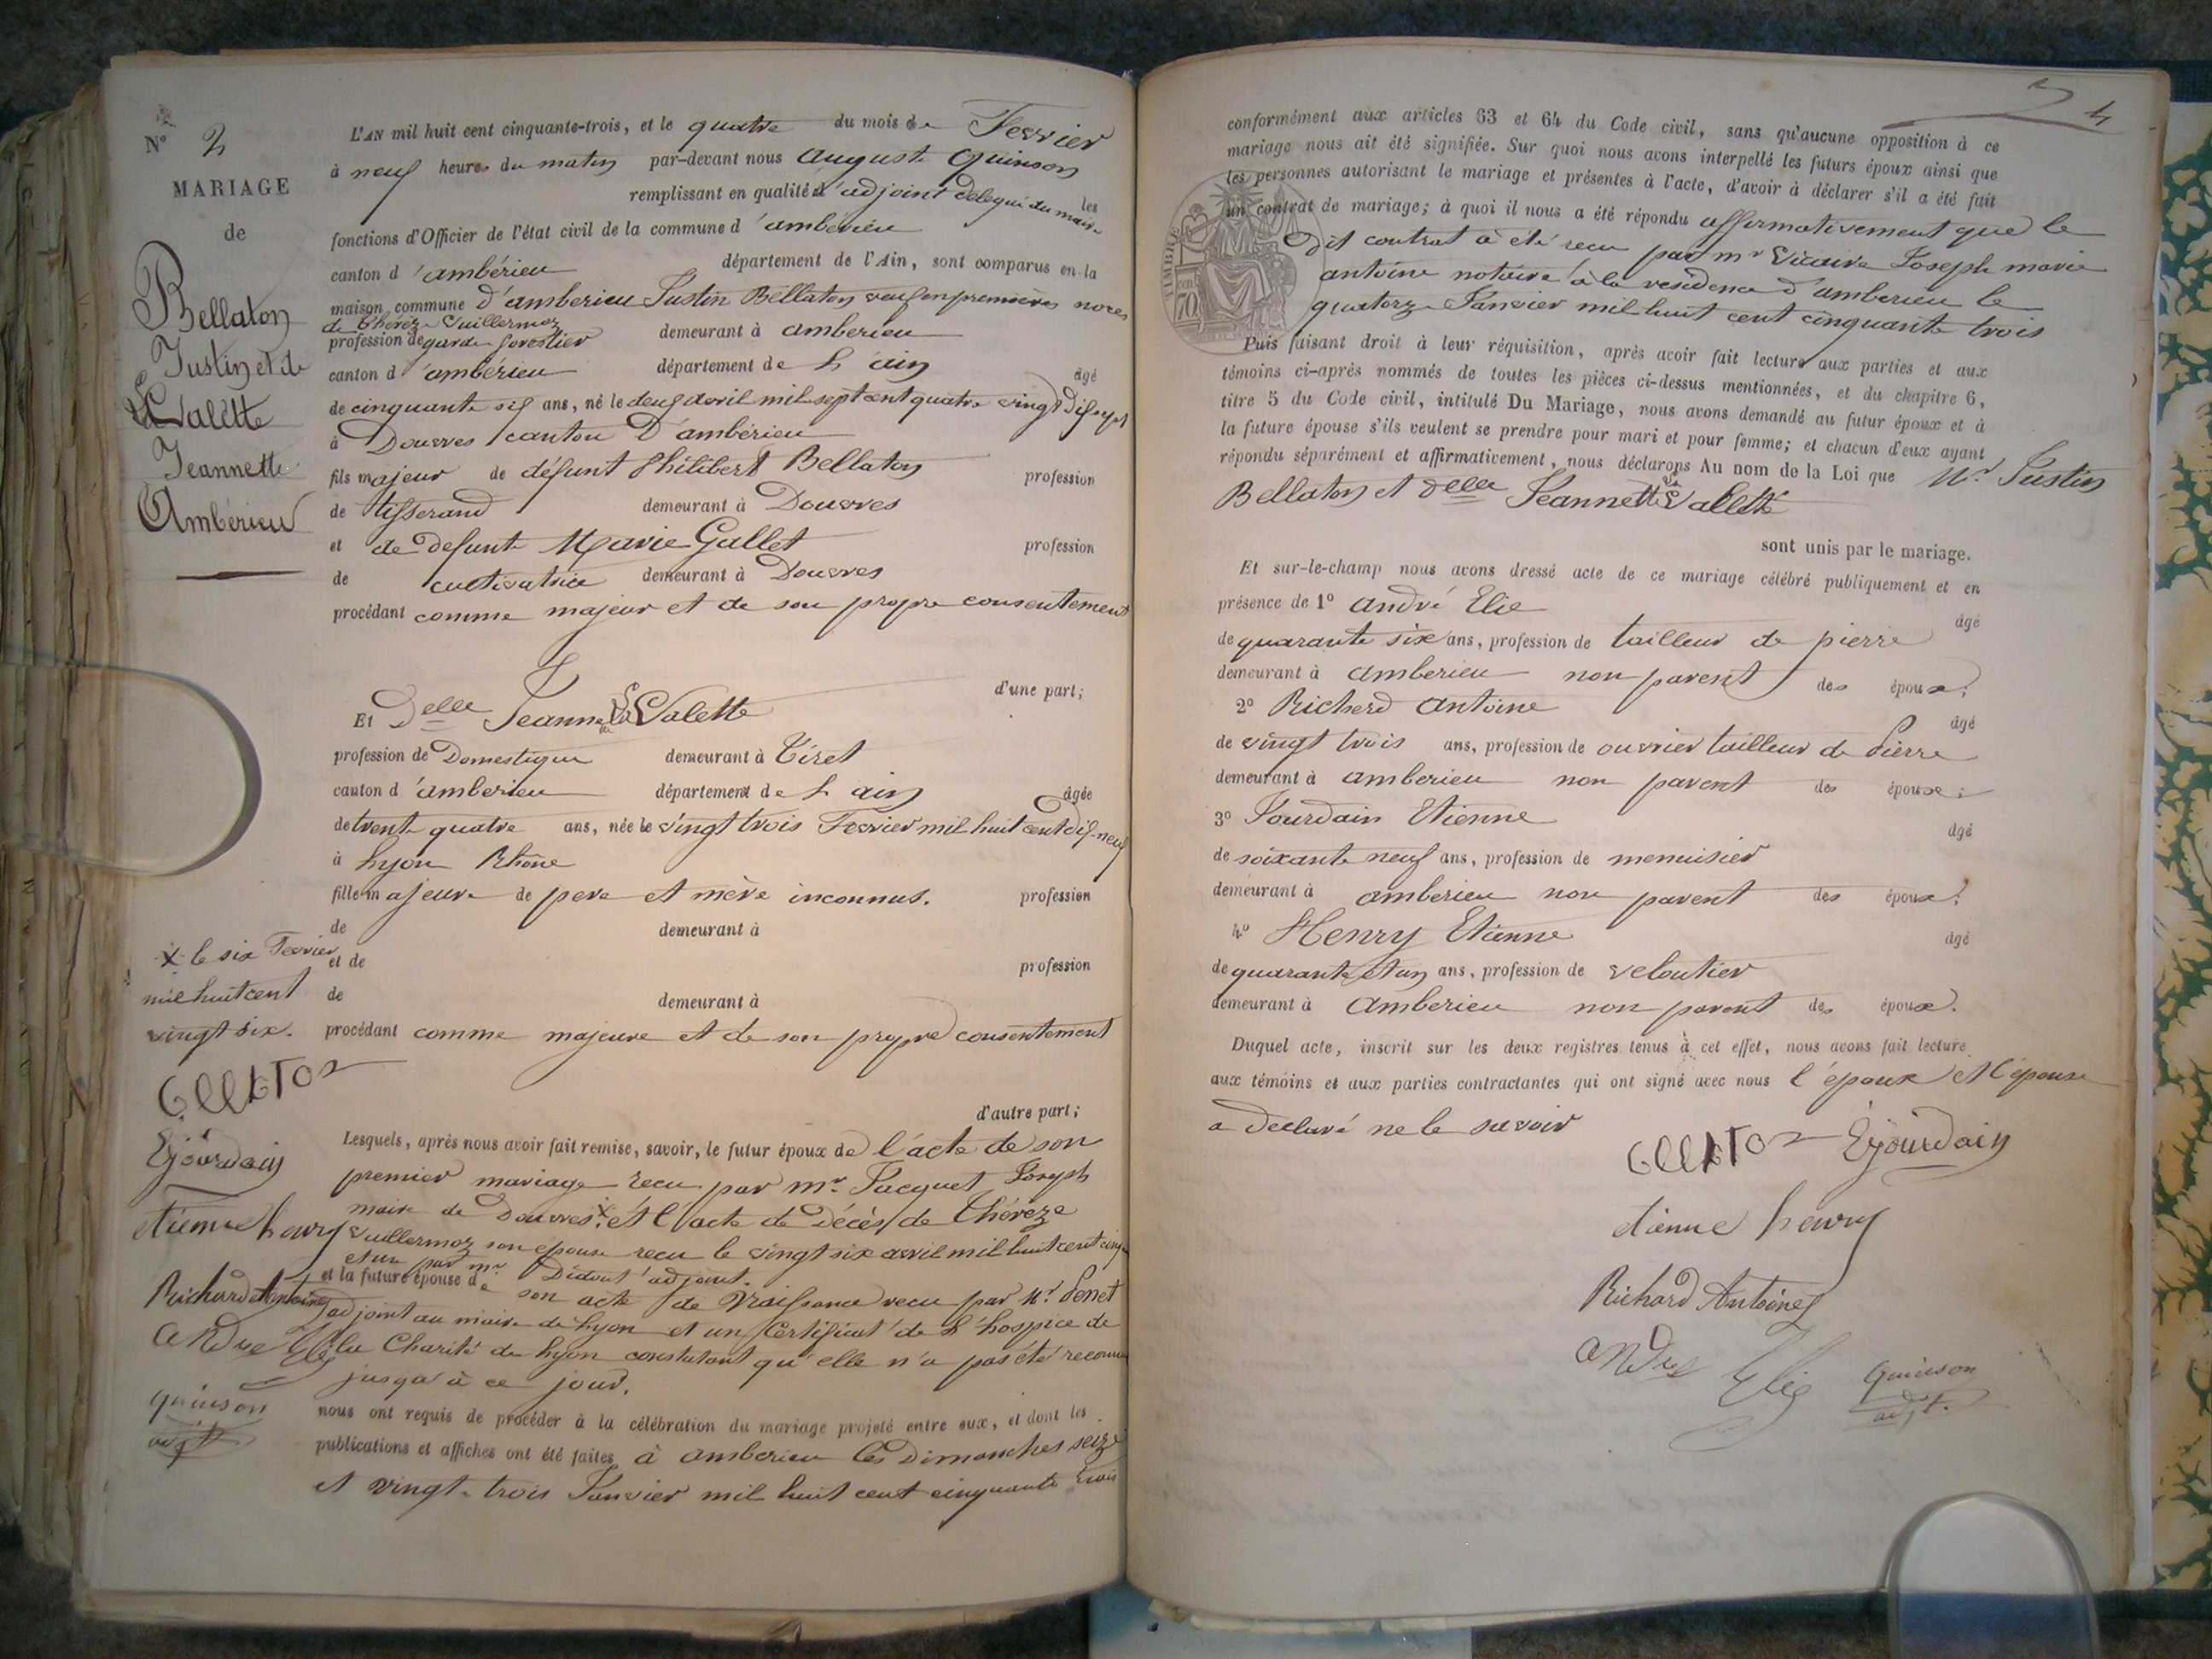 N° 2
MARIAGE
de
Bellaton
Justin et de
La Valette
Jeannette
Ambérieu
L'AN mil huit cent cinquante-trois, et le quatre du mois de Fevrier
à neuf heures du matin par-devant nous auguste Quinson
remplissant en qualité d'adjoint delegué du maire les
fonctions d'Officier de l'état civil de la commune d'ambérieu
canton d'ambérieu département de l'Ain, sont comparus en la
maison commune d'amberieu Justin Bellaton veuf en premières noces
de Thérèze Vuillermoz
profession de garde forestier demeurant à amberieu
canton d'ambérieu département de L'ain âgé
de cinquante six ans, né le deux avril mil sept cent quatre vingt dix sept
à Douvres canton D'ambérieu
fils majeur de défunt Philibert Bellaton profession
de tisserand demeurant à Douvres
et de defunte Marie Gallet profession
de cultivatrice demeurant à Douvres
procédant comme majeur et de son propre consentement
d'une part;
Et Delle Jeannette La Valette
profession de Domestique demeurant à Tiret
canton d'amberieu département de L'ain âgée
de trente quatre ans, née le vingt trois Fevrier mil huit cent dix-neuf
à Lyon Rhône
fille majeure de pere et mère inconnus. profession
de demeurant à
et de profession
de demeurant à
procédant comme majeure et de son propre consentement
d'autre part;
x le six Fevrier
mil huit cent
vingt six.
Ejourdain
etienne henry
Richard Antoine
andre Elie
quinson
adjt
Lesquels, après nous avoir fait remise, savoir, le futur époux de l'acte de son
premier mariage recu par mr. Jacquet Joseph
maire de Douvres x et l'acte de Décès de Thérèze
Vuillermoz son épouse recu le vingt six avril mil huit cent cinq
et un par mr Didout adjoint.
et la future épouse de son acte de Naissance recu par Mr. Penet
adjoint au maire de Lyon et un Certificat de L'hospice de
la Charité de Lyon constatant qu'elle n'a pas été reconnue
jusqu'à ce jour.
nous ont requis de procéder à la célébration du mariage projeté entre eux, et dont les
publications et affiches ont été faites à amberieu les Dimanches seize
et vingt-trois Janvier mil huit cent cinquante trois
4
conformément aux articles 63 et 64 du Code civil, sans qu'aucune opposition à ce
mariage nous ait été signifiée. Sur quoi nous avons interpellé les futurs époux ainsi que
les personnes autorisant le mariage et présentes à l'acte, d'avoir à déclarer s'il a été fait
un contrat de mariage; à quoi il nous a été répondu affirmativement que le
dit contrat à été recu par mr Vicaire Joseph marie
antoine notaire à la residence d'amberieu le
quatorze Janvier mil huit cent cinquante trois
TIMBRE
70
Puis faisant droit à leur réquisition, après avoir fait lecture aux parties et aux
témoins ci-après nommés de toutes les pièces ci-dessus mentionnées, et du chapitre 6,
titre 5 du Code civil, intitulé Du Mariage, nous avons demandé au futur époux et à
la future épouse s'ils veulent se prendre pour mari et pour femme; et chacun d'eux ayant
répondu séparément et affirmativement, nous déclarons Au nom de la Loi que Mr. Justin
Bellaton et Delle Jeannette La Valette
sont unis par le mariage.
Et sur-le-champ nous avons dressé acte de ce mariage célébré publiquement et en
présence de 1° andré Elie âgé
de quarante six ans, profession de tailleur de pierre
demeurant à amberieu non parent des époux;
2° Richerd Antoine âgé
de vingt trois ans, profession de ouvrier tailleur de Pierre
demeurant à amberieu non parent des époux;
3° Jourdain Etienne âgé
de soixante neuf ans, profession de menuisier
demeurant à amberieu non parent des époux;
4° Henry Etienne âgé
de quarante et un ans, profession de veloutier
demeurant à Amberieu non parent des époux.
Duquel acte, inscrit sur les deux registres tenus à cet effet, nous avons fait lecture
aux témoins et aux parties contractantes qui ont signé avec nous l'époux et l'épouse
a Declaré ne le savoir
Ejourdain
etienne henry
Richard Antoine
andre Elie
quinson
adjt.